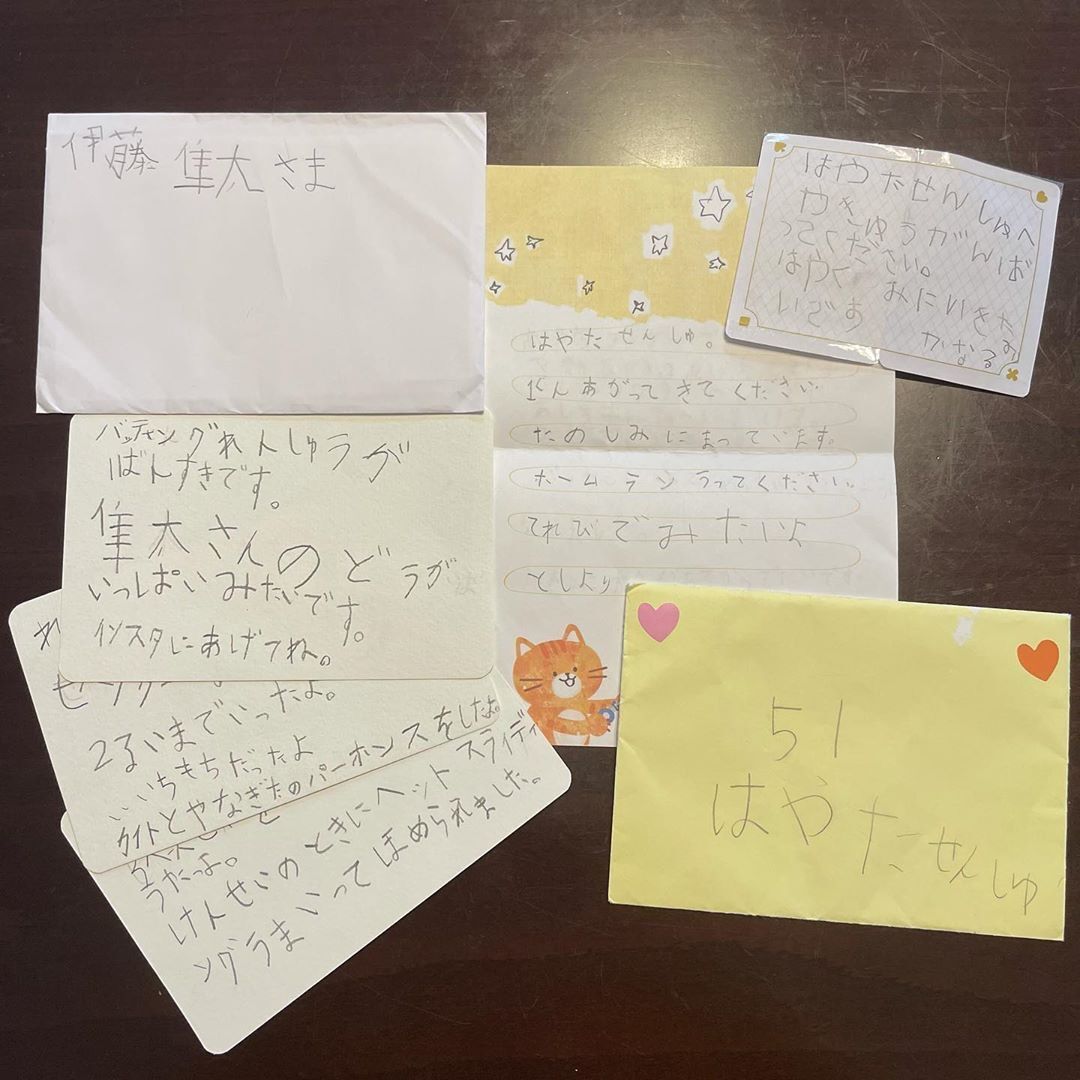 伊藤 隼太 さま
はやたせんしゅへ
やきゅうがんば
ってください。
はやく みにいきた
いです
かなるお
はやた せんしゅ。
1ぐんあがって きて ください
たのしみにまっています。
ホームラン うってください
てれびで みたいよ
としより
バッティングれんしゅうが
ばんすきです。
隼太さんのど
うが
いっぱいみたいです。
インスタにあげてね。
2るいまでいったよ。
いちもちだったよ
ライトとやなぎたのパーホンスをしたよ。
うだっよ。
けんせいのときにヘットスライディ
ングうまいってほめられました。
51
はやたせんしゅ